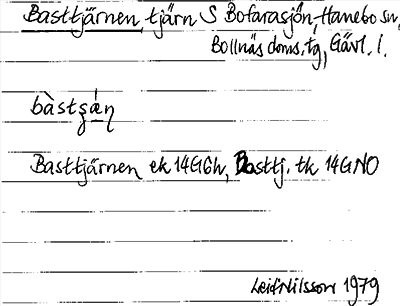 Basttjärnen, tjärn S Bofarasjön, Hanebo sn,
Bollnäs doms. tg, Gävl. l.
bàstʂán
Basttjärnen ek 14G6h, Basttj. tk 14G NO
Leif Nilsson 1979